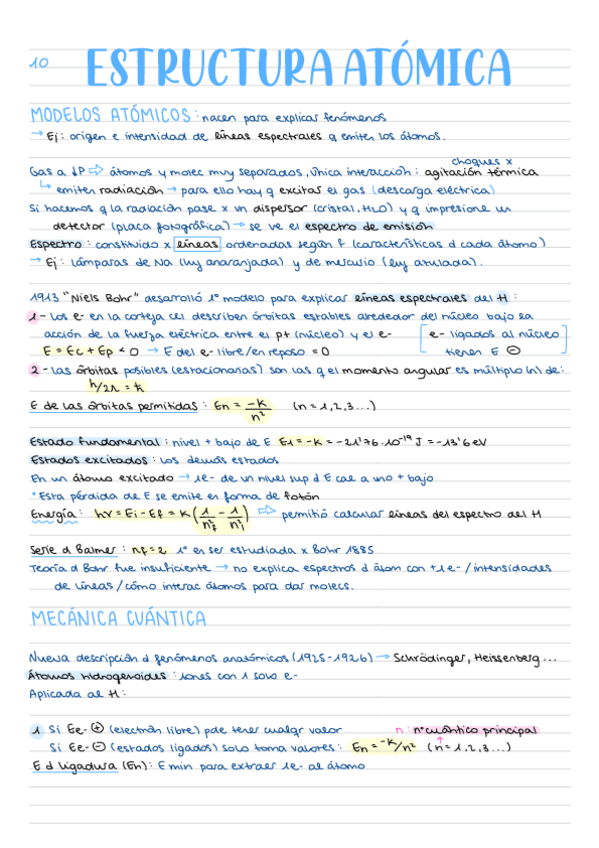 10
ESTRUCTURA ATÓMICA
MODELOS ATÓMICOS: nacen para explicar fenómenos
→ Ej: origen e intensidad de líneas espectrales q emiten los átomos.
choques x
Gas a ↓P ⇨ átomos y molec muy separados, única interacción: agitación térmica
↳ emiten radiación → para ello hay q excitar el gas (descarga eléctrica)
Si hacemos q la radiación pase x un dispersor (cristal, H2O) y q impresione un
detector (placa fotográfica) → se ve el espectro de emisión
Espectro: constituido x líneas ordenadas según f (características d cada átomo)
→ Ej: lámparas de Na (luz anaranjada) y de mercurio (luz azulada).
1913 "Niels Bohr" desarrolló 1º modelo para explicar líneas espectrales del H:
1- Los e- en la corteza describen órbitas estables alrededor del núcleo bajo la
acción de la fuerza eléctrica entre el p+ (núcleo) y el e- [e- ligados al núcleo
E = Ec + Ep < 0 → E del e- libre/en reposo = 0 tienen E ⊖]
2- Las órbitas posibles (estacionarias) son las q el momento angular es múltiplo (n) de:
h/2π = ħ
E de las órbitas permitidas: En = -K/n² (n = 1,2,3...)
Estado fundamental: nivel + bajo de E E1 = -K = -21'76·10⁻¹⁹ J = -13'6 eV
Estados excitados: los demás estados
En un átomo excitado → 1e- de un nivel sup d E cae a uno + bajo
* Esta pérdida de E se emite en forma de fotón
Energía: hν = Ei - Ef = K (1/n²f - 1/n²i) ⇨ permitió calcular líneas del espectro del H
Serie d Balmer: nf = 2 1º en ser estudiada x Bohr 1885
Teoría d Bohr fue insuficiente → no explica espectros d átom con +1e- / intensidades
de líneas / cómo interac átomos para dar molecs.
MECÁNICA CUÁNTICA
Nueva descripción d fenómenos anatómicos (1925-1926) → Schrödinger, Heissenberg...
Átomos hidrogenoides: iones con 1 solo e-
Aplicada al H:
1 Si Ee- ⊕ (electrón libre) pde tener cualqr valor n: nº cuántico principal
Si Ee- ⊖ (estados ligados) solo toma valores: En = -K/n² (n = 1,2,3...)
E d ligadura (En): E min para extraer 1e- al átomo